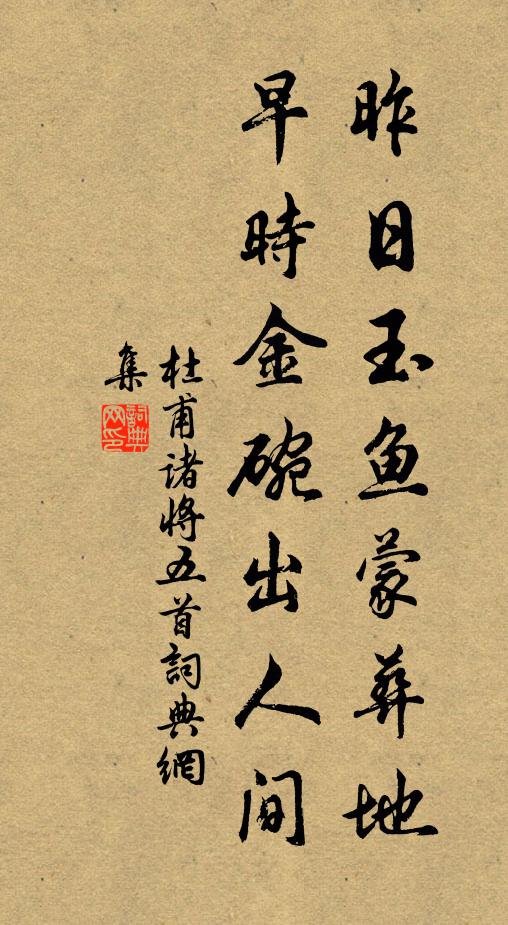 昨日玉鱼蒙葬地
早時金碗出人间
杜甫诸将五首詞典網
集
詞典
网印